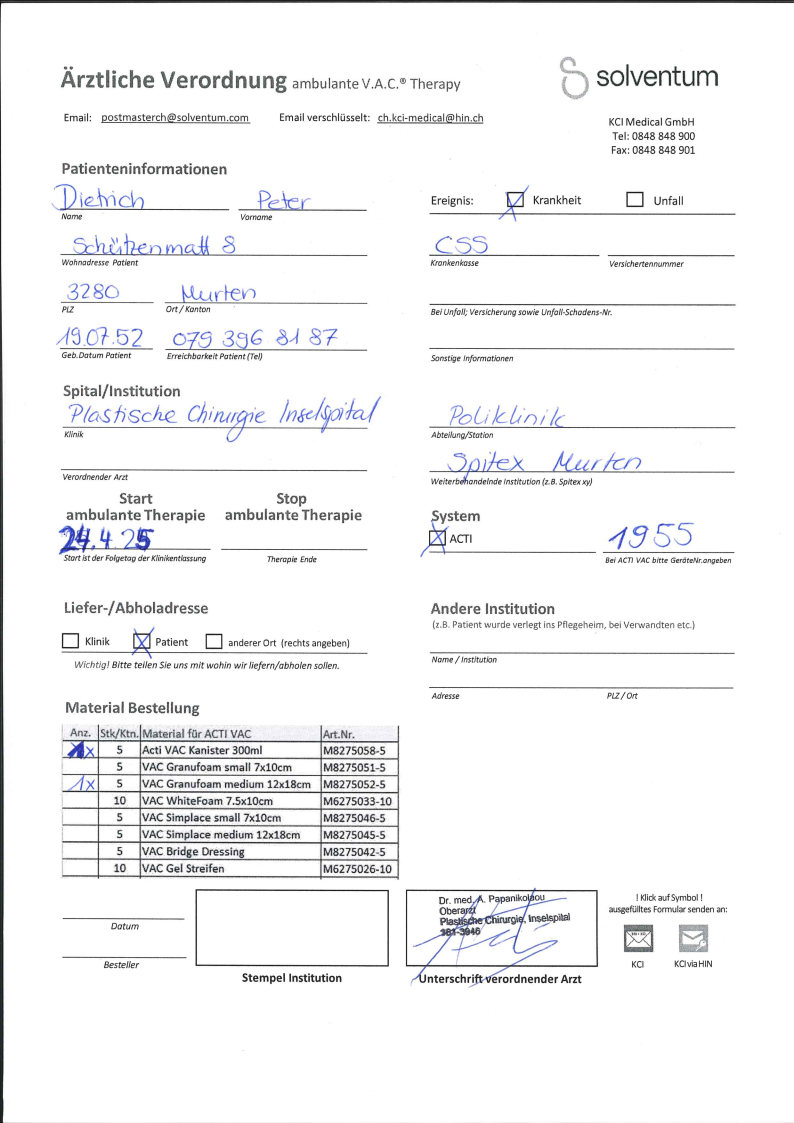 Ärztliche Verordnung ambulante V.A.C.® Therapy
solventum
Email: postmasterch@solventum.com Email verschlüsselt: ch.kci-medical@hin.ch
KCI Medical GmbH
Tel: 0848 848 900
Fax: 0848 848 901
Patienteninformationen
Dietrich Peter
Name Vorname
Schützenmatt 8
Wohnadresse Patient
3280 Murten
PLZ Ort / Kanton
19.07.52 079 396 81 87
Geb.Datum Patient Erreichbarkeit Patient (Tel)
Ereignis: Krankheit Unfall
CSS
Krankenkasse Versichertennummer
Bei Unfall; Versicherung sowie Unfall-Schadens-Nr.
Sonstige Informationen
Spital/Institution
Plastische Chirurgie Inselspital
Klinik
Verordnender Arzt
Poliklinik
Abteilung/Station
Spitex Murten
Weiterbehandelnde Institution (z.B. Spitex xy)
Start Stop
ambulante Therapie ambulante Therapie
24.4.25
Start ist der Folgetag der Klinikentlassung Therapie Ende
System
ACTI 1955
Bei ACTI VAC bitte GeräteNr.angeben
Liefer-/Abholadresse
Klinik Patient anderer Ort (rechts angeben)
Wichtig! Bitte teilen Sie uns mit wohin wir liefern/abholen sollen.
Andere Institution
(z.B. Patient wurde verlegt ins Pflegeheim, bei Verwandten etc.)
Name / Institution
Adresse PLZ / Ort
Material Bestellung
Anz. Stk/Ktn. Material für ACTI VAC Art.Nr.
1x 5 Acti VAC Kanister 300ml M8275058-5
5 VAC Granufoam small 7x10cm M8275051-5
1x 5 VAC Granufoam medium 12x18cm M8275052-5
10 VAC WhiteFoam 7.5x10cm M6275033-10
5 VAC Simplace small 7x10cm M8275046-5
5 VAC Simplace medium 12x18cm M8275045-5
5 VAC Bridge Dressing M8275042-5
10 VAC Gel Streifen M6275026-10
Datum
Besteller
Stempel Institution
Dr. med. A. Papanikolaou
Oberarzt
Plastische Chirurgie, Inselspital
381-3946
Unterschrift verordnender Arzt
! Klick auf Symbol !
ausgefülltes Formular senden an:
KCI KCI via HIN